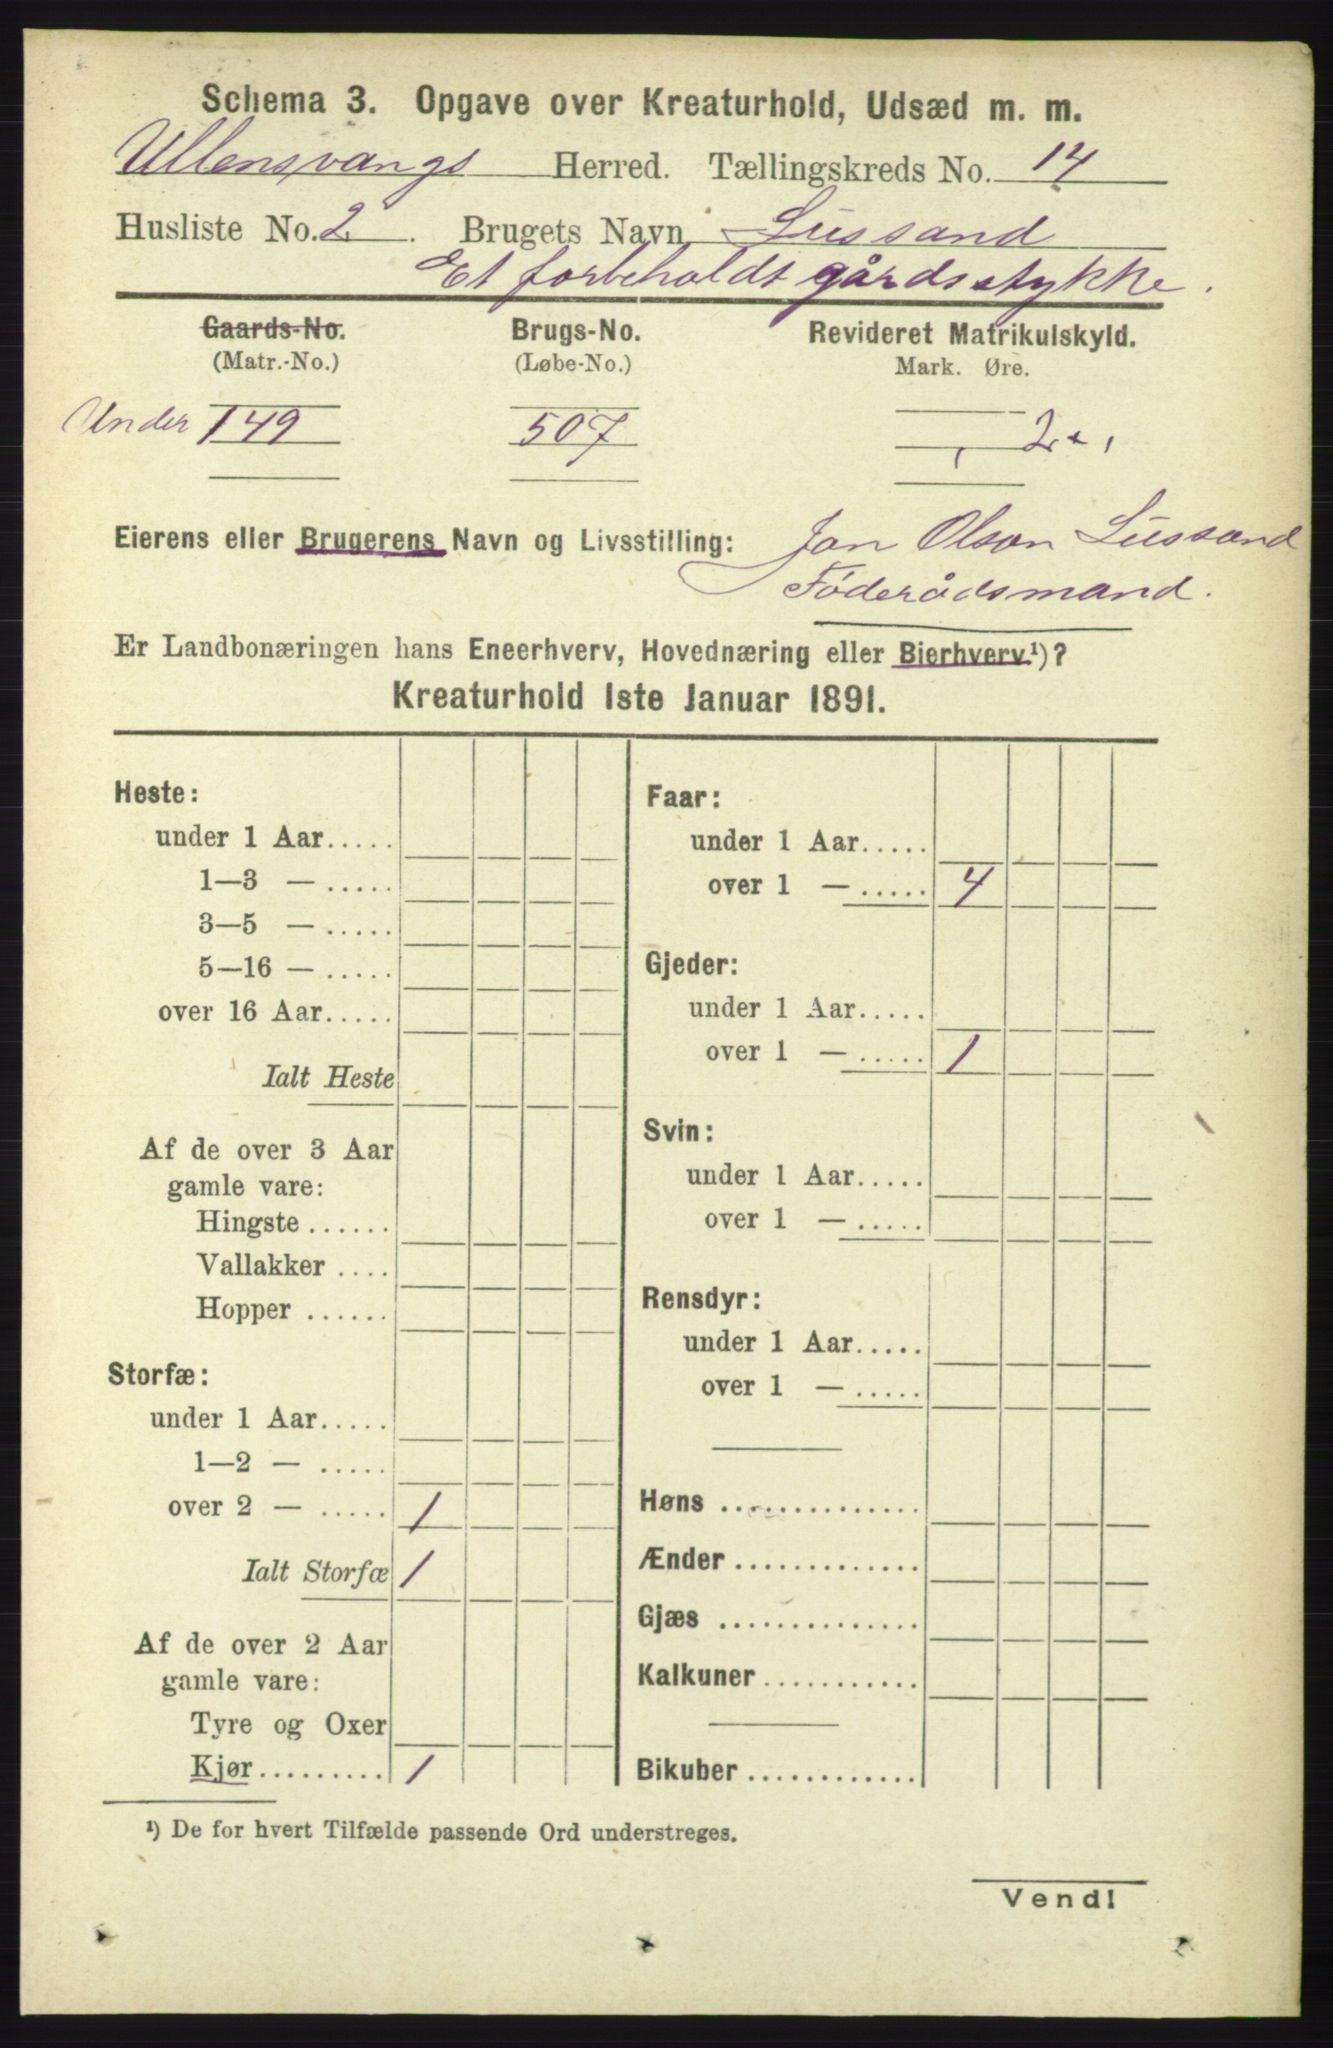 Schema 3. Opgave over Kreaturhold, Udsæd m. m.
Ullensvangs Herred. Tællingskreds No. 14
Husliste No. 2. Brugets Navn Lussand
Et forbeholdt gårdsstykke.
Gaards-No. Brugs-No. Revideret Matrikulskyld.
(Matr.-No.) (Løbe-No.) Mark. Øre.
Under 149 507
Eierens eller Brugerens Navn og Livsstilling: Jon Olson Lussand
Føderådsmand.
Er Landbonæringen hans Eneerhverv, Hovednæring eller Bierhverv¹)?
Kreaturhold 1ste Januar 1891.
Heste:
under 1 Aar.....
1—3 — .....
3—5 — .....
5—16 — .....
over 16 Aar.....
Ialt Heste
Af de over 3 Aar
gamle vare:
Hingste ......
Vallakker ....
Hopper ......
Storfæ:
under 1 Aar.....
1—2 — .....
over 2 — ..... 1
Ialt Storfæ 1
Af de over 2 Aar
gamle vare:
Tyre og Oxer
Kjør......... 1
Faar:
under 1 Aar.....
over 1 — ..... 4
Gjeder:
under 1 Aar.....
over 1 — ..... 1
Svin:
under 1 Aar.....
over 1 — .....
Rensdyr:
under 1 Aar.....
over 1 — .....
Høns ..............
Ænder .............
Gjæs ..............
Kalkuner ...........
Bikuber ............
¹) De for hvert Tilfælde passende Ord understreges.
Vend!